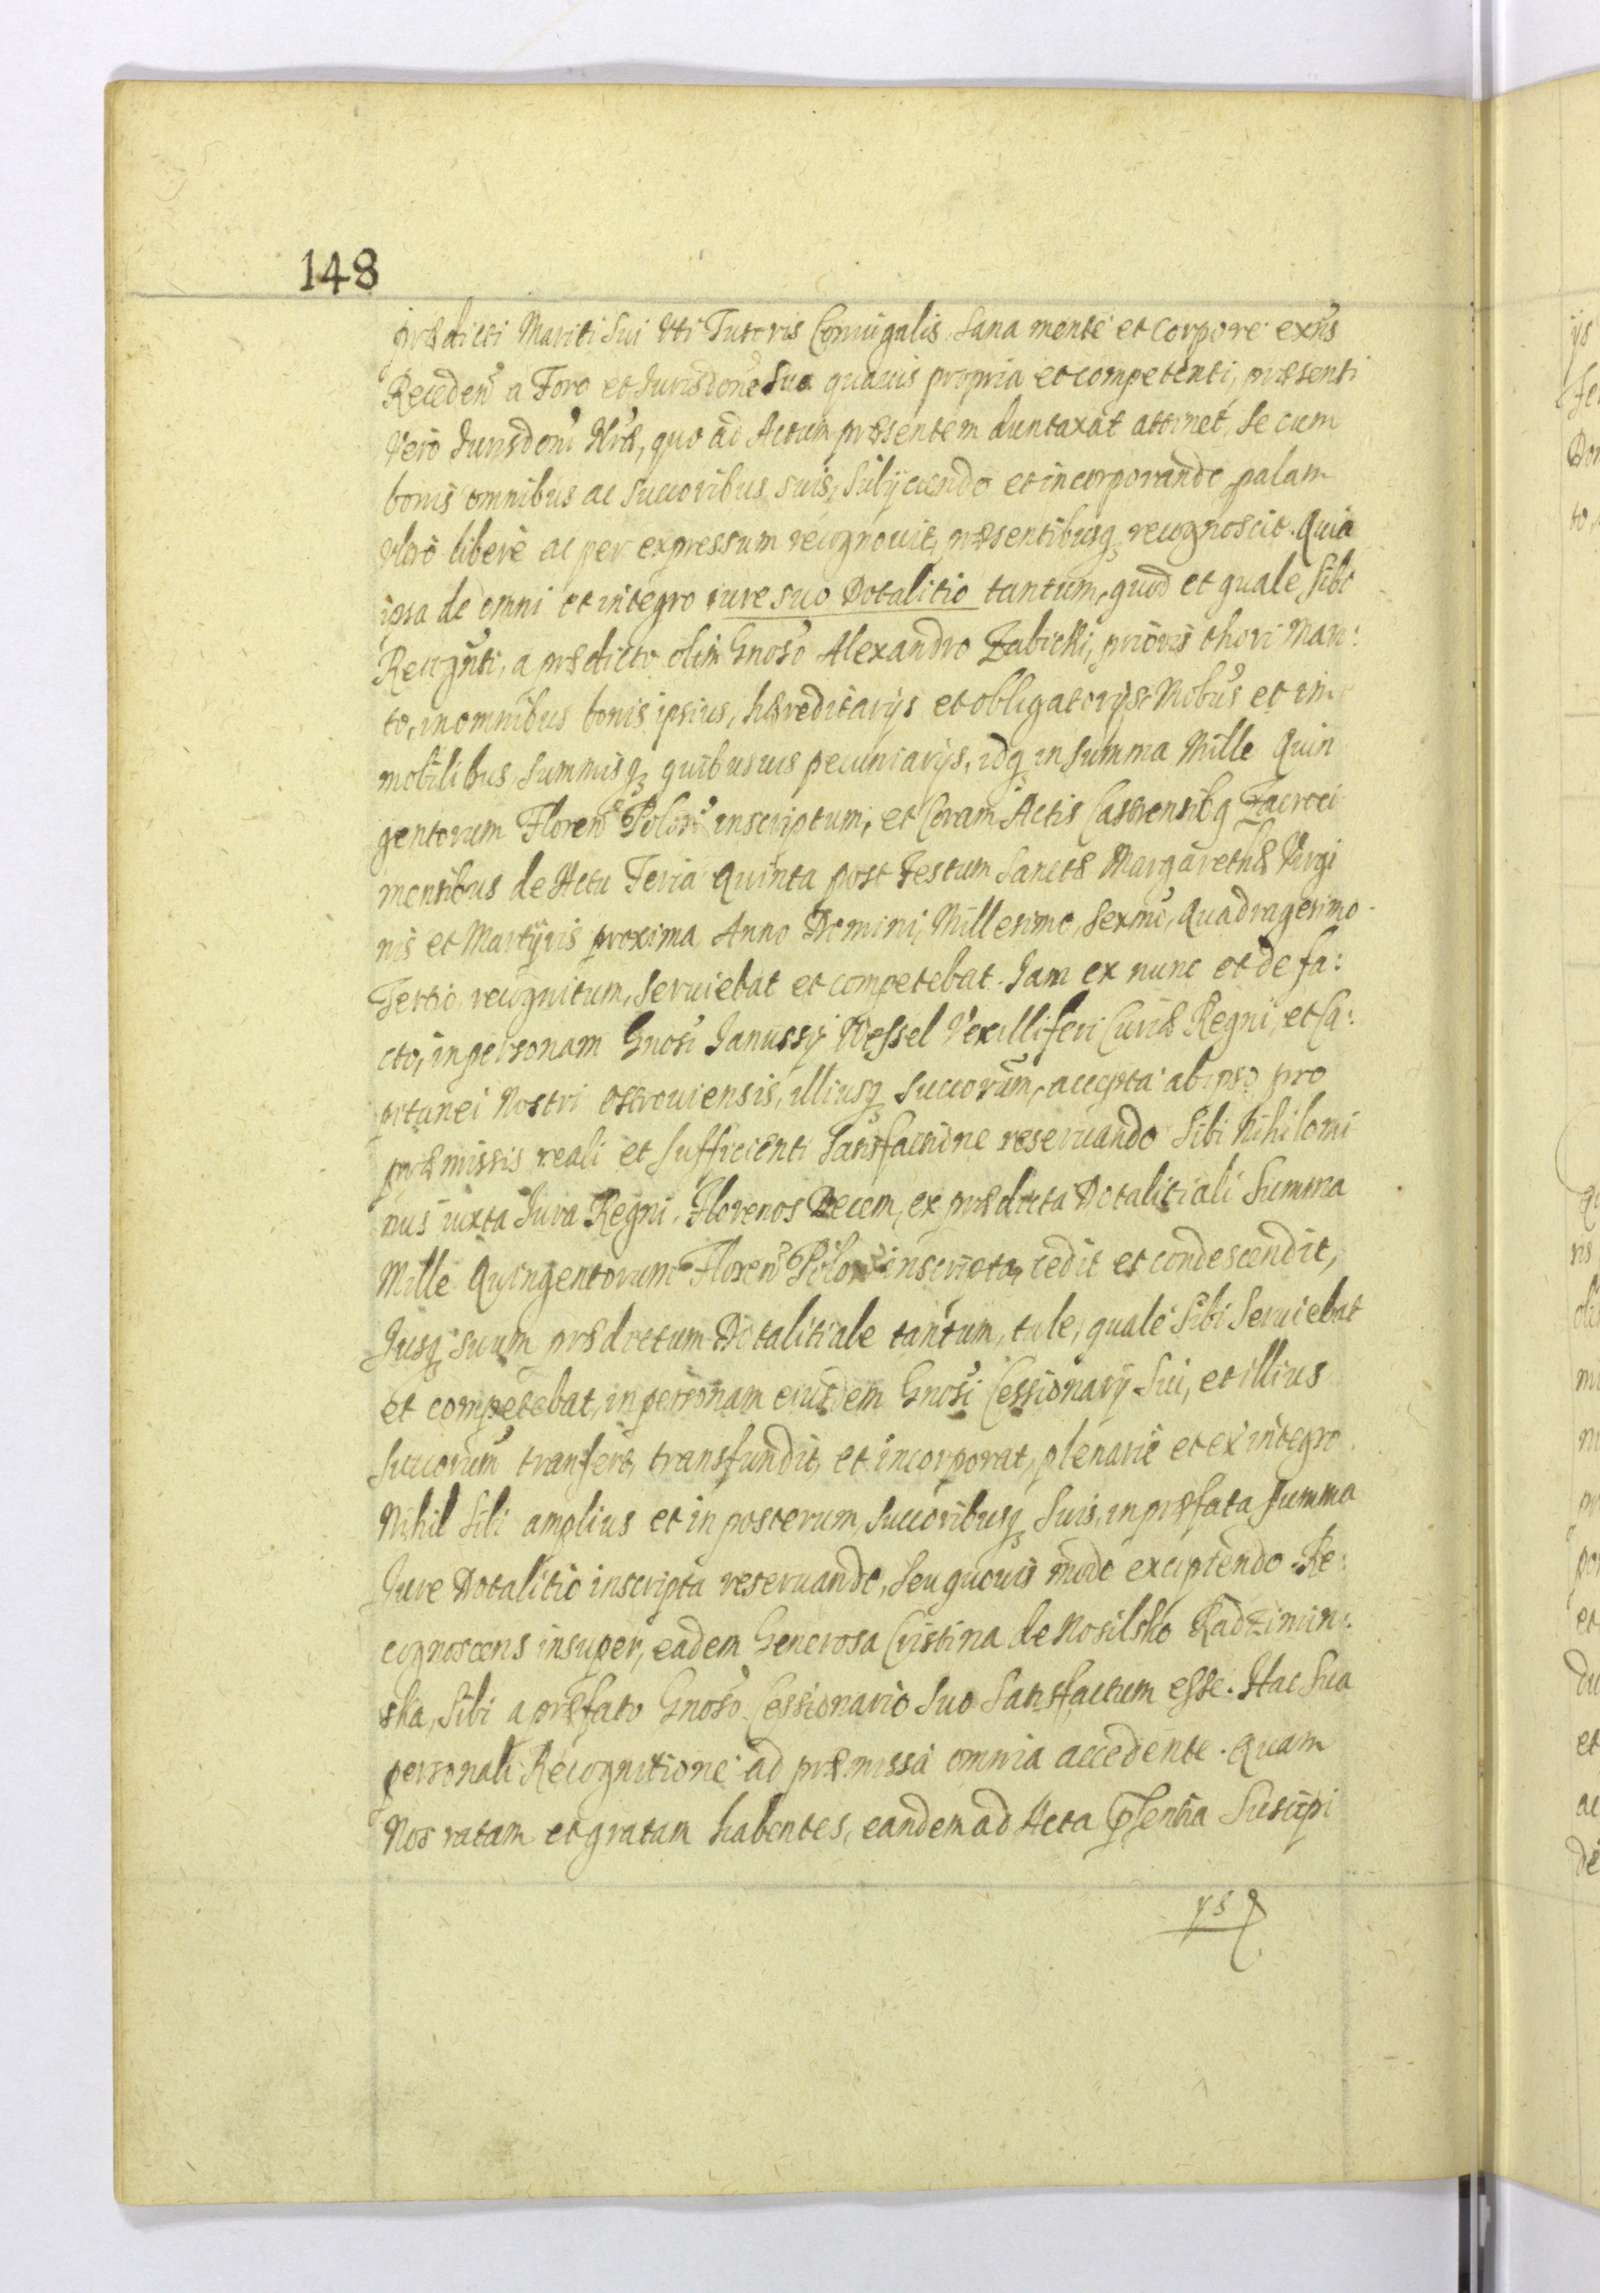 148
prædicti Mariti Sui Uti Tutoris Coniugalis Sana mente et corpore exn̄s
Recedens a Foro et Jurisdōne Sua quavis propria et competenti, præsenti
Vero Jurisdoni Nræ, quo ad Actum præsentem duntaxat attinet, Se cum
bonis omnibus ac Succoribus suis, Subijciendo et incorporando, palam
Ultrò liberè ac per expressum recognouit, præsentibusq recognoscit. Quia
ipsa de omni et integro iure suo Dotalitio tantum, quod et quale Sibi
Recognti, a prædicto olim Gnoso Alexandro Zabicki, prioris thori Mari:
to, in omnibus bonis ipsius, hæreditarijs et obligatorijs Mobus et im
mobilibus, Summisq quibusuis pecuniarijs, idq in Summa Mille Quin
gentorum Floren Polon inscriptum, et Coram Actis Castrensibq Zacroci
mensibus de Actu Feria Quinta post Festum Sanctæ Margarethæ Virgi
nis et Martyris proxima Anno Domini Millesimo, Sexmo, Quadragesimo
Tertio recognitum, Seruiebat et competebat. Jam ex nunc et de fa:
cto, in personam Gnosi Janussij Wessel Vexilliferi Curiæ Regni, et Ca:
pitanei Nostri Ostrouiensis, illiusq Succorum, accepta ab ipso pro
præmissis reali et Sufficienti Satisfactione reseruando Sibi Nihilomi
nus iuxta Jura Regni, Florenos Decem, ex prædicta Dotalitiali Summa
Mille Quingentorum Floren Polon inscripta, cedit et condescendit,
Jusq suum prædictum Dotalitiale tantum, tale, quale Sibi Seruiebat
et competebat, in personam eiusdem Gnosi Cessionarij Sui, et illius
Succorum transfert, transfundit, et incorporat, plenariè et ex integro
Nihil Sibi amplius et in posterum, Succoribusq Suis, in præfata Summa
Jure Dotalitio inscripta reseruando, Seu quouis modo excipiendo. Re:
cognoscens insuper, eadem Generosa Cristina de Nosilsko Radzimin:
ska, Sibi a præfato Gnoso Cessionario Suo Satisfactum esse. Hac Sua
personali Recognitione ad præmissa omnia accedente. Quam
Nos ratam et gratam habentes, eandem ad Acta Psentia Suscipi